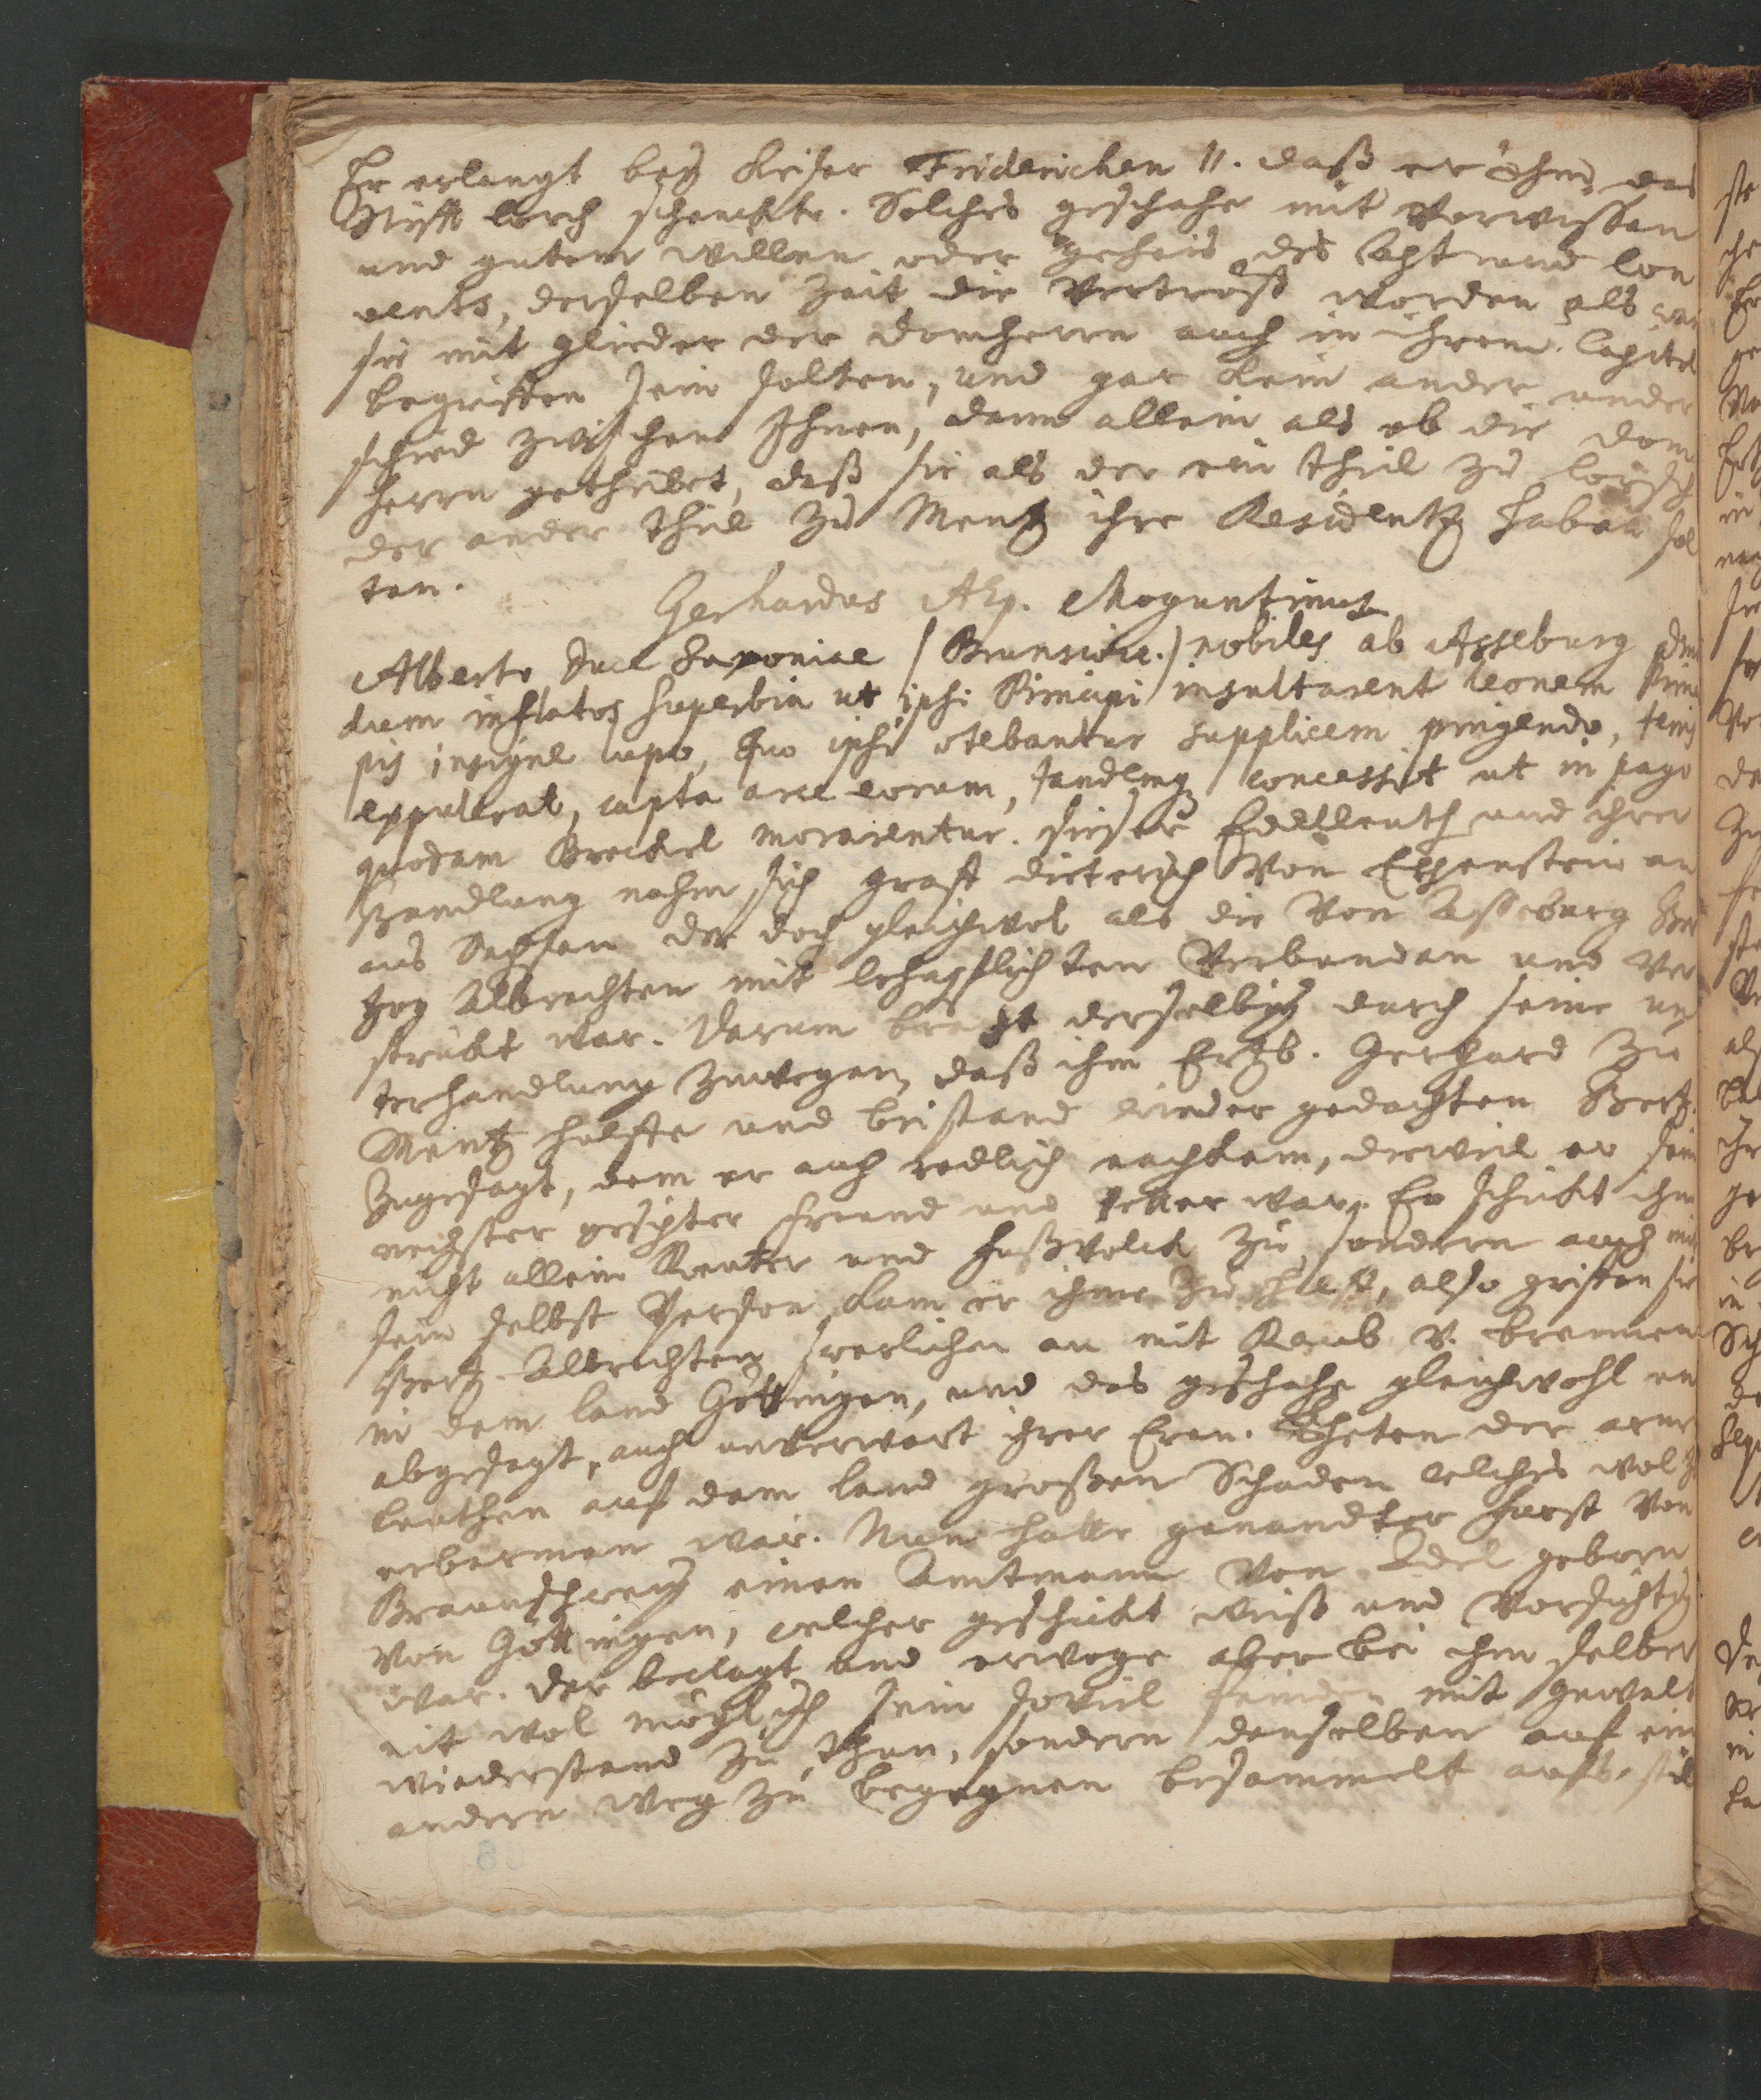 Er erlangt bey Keiser Friderichen II. daß er ihm das
Stifft Lorch schenckte. Solches geschahe mit Vorwissen
und gutem willen oder geheis des Capt und Con
vents, derselben Zeit die Vertröst worden als wan
sie mit glieder der Domherrn auch in ihrem Capitel
begriffen sein solten, und gar kein ander under
schied zwischen Ihnen, dann allein als ob die Dom
herrn getheilet, daß sie als der ein theil zu Lorsch
der ander theil zu Mentz ihre Residentz haben sol
ten.
Gerhardus Aep. Moguntinus
Alberto Duce Saxoniae (Brunsvic.) nobiles ab Asseburg
dum inflatos superbia ut ipsi Principi insultarent leonem Princi
pis insigne lupo, quo ipsi utebantur supplicem pingendo,
expulerat, capta arce eorum, tandemq concessit ut in pago
quodam Brockel morarentur. dieser Edelleuth und ihrer
Handlung nahm sich graff Dieterich von Eppenstein an
aus Sachsen der doch gleichwol als die von Asseburg Her
tzog Albrechten mit lehnspflichten Verbunden und Ver
strickt war. Darum bracht derselbig durch seine un
terhandlung zuwegen, daß ihm Ertzb. Gerhard zu
Mentz hülffe und beistand wieder gedachten Hertz.
zugesagt, dem er auch redlich nachkam, dieweil er sein
nechster gesipter freund und Vetter war. Er schickt ihm
nicht allein Reuter und fußvolck zu, sondern auch mit
sein selbst Person kam er ihme zu hülff, also griffen sie
Hertz. Albrechten feerlichen an mit Raub v. brennen
in dem land Göttingen, und das geschahe gleichwohl un
abgesagt, auch unverwart ihrer Ehrn. Theten der arme
leuthen auf dem land großen Schaden welches wol zu
erbarmen war. Nun hatte genandter fürst von
Braunschweig einen Amtmann von Adel geborn
von Göttingen, welcher geschickt weiß und Vorsichtig
war. der beclagt und erwoge aber bei ihm selber
nit wol müglich sein soviel feinden mit gewalt
wiederstand zu thun, sondern denselben auf ein
andern weg zu begegnen besammelt aufs stil